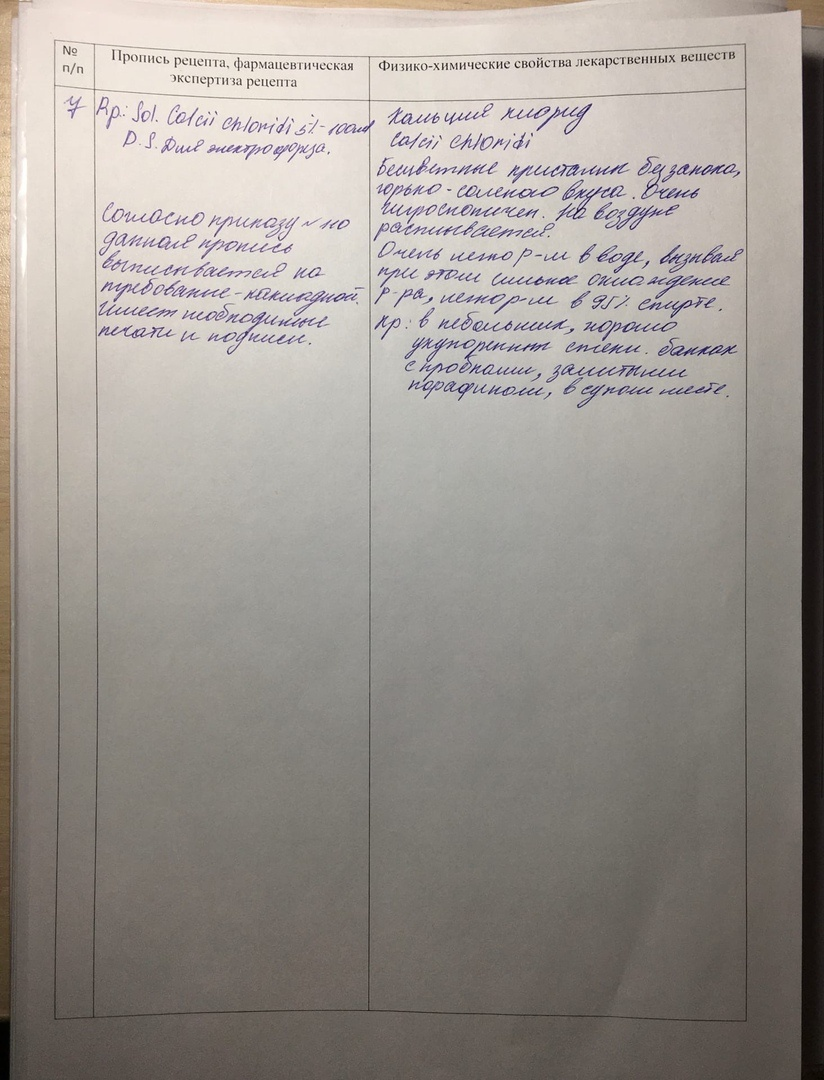 № п/п
Пропись рецепта, фармацевтическая
экспертиза рецепта
Физико-химические свойства лекарственных веществ
7
Rp.: Sol. Calcii chloridi 5% - 100ml
D. S. Для электрофореза.
Согласно приказу № 110
данная пропись
выписывается на
требование-накладной.
Имеет необходимые
печати и подписи.
Кальция хлорид
Calcii chloridi
Бесцветные кристаллы без запаха,
горько-соленого вкуса. Очень
гигроскопичен. На воздухе
расплывается.
Очень легко р-м в воде, вызывая
при этом сильное охлаждение
р-ра, легко р-м в 95% спирте.
Хр: в небольших, хорошо
укупоренных стекл. банках
с пробками, залитыми
парафином, в сухом месте.